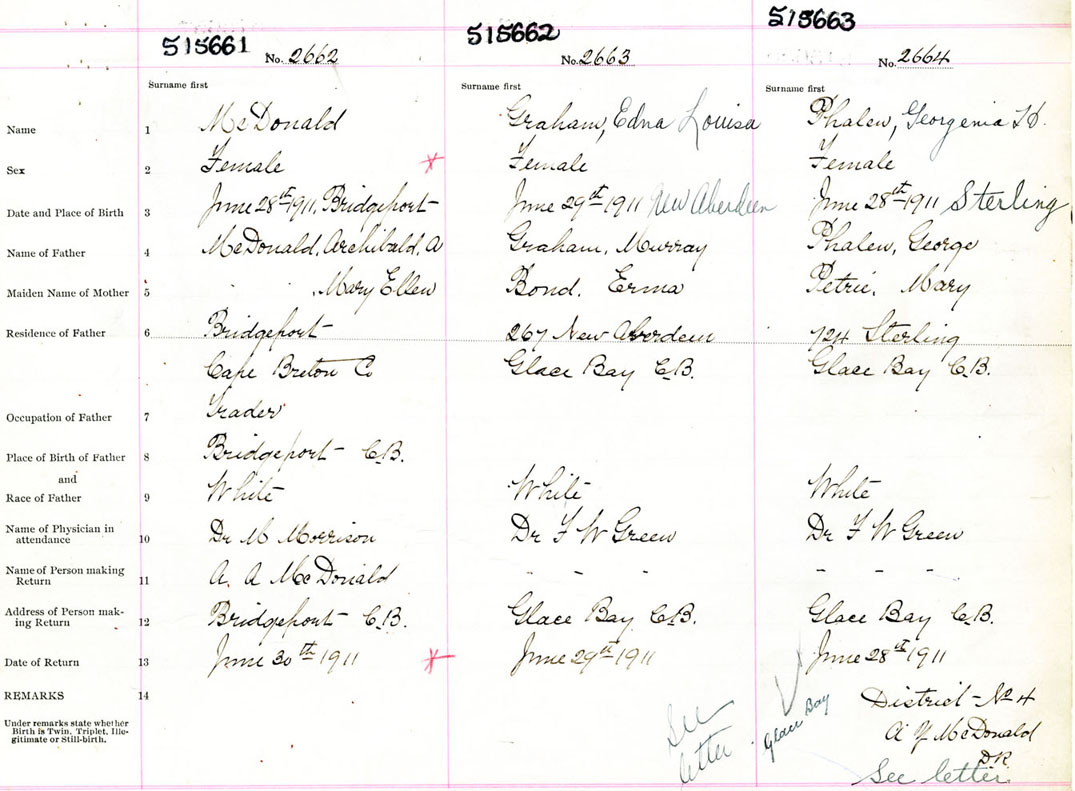 515661 515662 515663
No. 2662 No. 2663 No. 2664
Surname first Surname first Surname first
Name 1 McDonald Graham, Edna Louisa Phalen, Georgenia H.
Sex 2 Female Female Female
Date and Place of Birth 3 June 28th 1911, Bridgeport June 29th 1911 New Aberdeen June 28th 1911 Sterling
Name of Father 4 McDonald, Archibald, A Graham, Murray Phalen, George
Maiden Name of Mother 5 " " , Mary Ellen Bond, Erma Petrie, Mary
Residence of Father 6 Bridgeport 267 New Aberdeen 724 Sterling
Cape Breton Co Glace Bay C.B. Glace Bay C.B.
Occupation of Father 7 Trader
Place of Birth of Father 8 Bridgeport C.B.
and
Race of Father 9 White White White
Name of Physician in
attendance 10 Dr M Morrison Dr F W Green Dr F W Green
Name of Person making
Return 11 A. A McDonald - - - - - -
Address of Person mak-
ing Return 12 Bridgeport C.B. Glace Bay C.B. Glace Bay C.B.
Date of Return 13 June 30th 1911 June 29th 1911 June 28th 1911
REMARKS 14 District No 4
Under remarks state whether
Birth is Twin, Triplet, Ille-
gitimate or Still-birth.
See
letter
Glace Bay
A J McDonald
DR
See letter